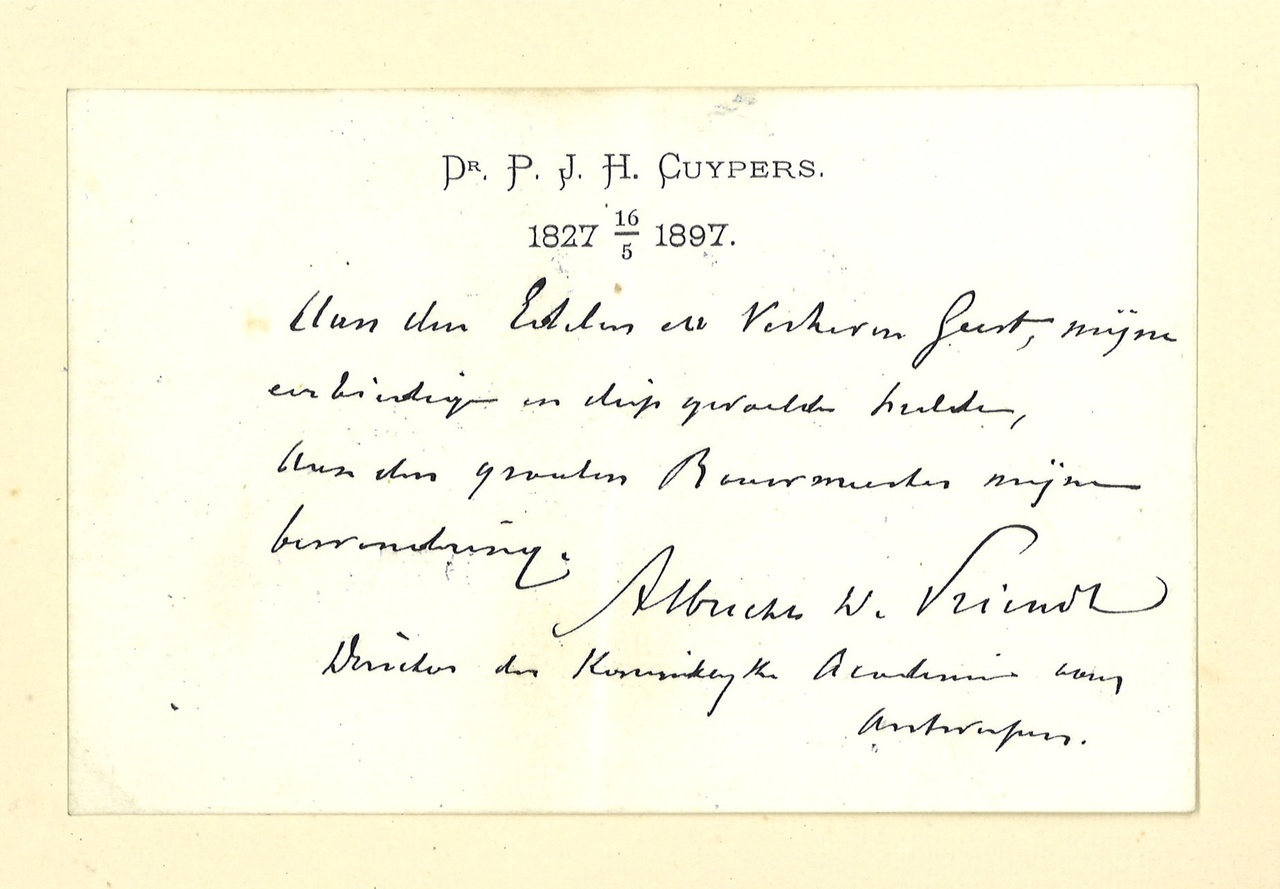 DR. P. J. H. CUYPERS.
1827 16/5 1897.
Aan den Edelen en Geest, mijne
eerbiedige en diep gevoelde hulde,
Aan den grooten Bouwmeester mijne
bewondering.
Albrecht De Vriendt
Director der Koninklyke Academie van
Antwerpen.